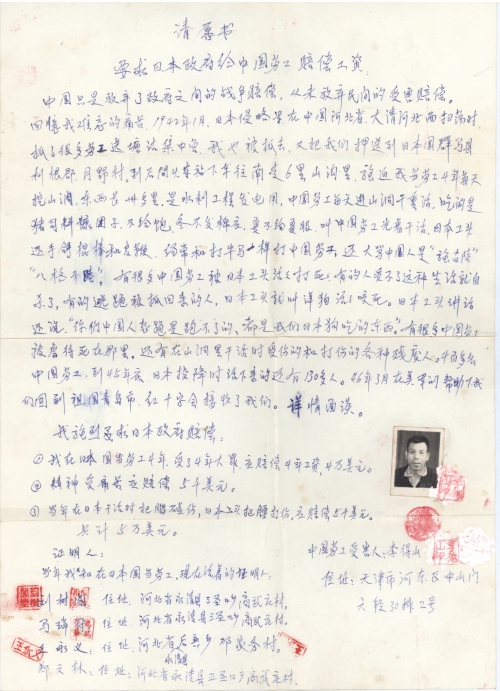 请愿书
要求日本政府给中国劳工赔偿工资：
中国只是放弃了政府之间的战争赔偿，从未放弃民间的受害赔偿。
回忆我难忘的痛苦，1942年1月，日本侵略军在中国河北省、大清河北西扫荡时
抓了很多劳工送塘沽集中营，我也被抓去，又把我们押送到日本国群马县
利根郡、月野村，到石間火车站下车往南走6里山沟里，强迫我当劳工4年每天
挖山洞，东西长卅多里，是水利工程发电用，中国劳工每天进山洞干重活，吃的是
糠团子，不给饱，冬不发棉衣，夏不给夏服，叫中国劳工光着干活，日本工头
还手持棍棒和皮鞭，给赶和打牛马一样打中国劳工，还大骂中国人是
有很多中国劳工被日本工头活活打死；有的人受不了这种生活就自
杀了，有的逃跑被抓回来的人，日本工头就叫洋狗活活咬死。日本工头讲话
还说："你们中国人想跑是跑不了的，都是我们日本狗吃的东西"，有很多中国劳工
被虐待死在那里。还有在山洞里干活时受伤的和打伤的各种残废人。
中国劳工，到45年底，日本投降时活下来的还有130多人。46年3月在美军的帮助下我
们回到祖国青岛市，红十字会接收了我们。详情面谈。
我强烈要求日本政府赔偿：
① 我在日本国当劳工4年，受了4年大罪，应赔偿4年工资，4万美元。
② 精神受痛苦应赔偿5千美元。
③ 当年在日本干活时把腿砸伤，日本工头把腰打伤，应赔偿5千美元。
共计5万美元。
中国劳工受害人：李得山
证明人：
住地：天津市河东区中山门
当年我们和在日本国当劳工，现在活着的证明人：
六段30排2号
刘树 住地：河北省永清县三圣口乡商武庄村。
马瑞 住地：河北省永清县三圣口乡商武庄村。
王永义 住地：河北省永清县后奕乡邓家务村。
郑文林：住地：河北省永清县三圣口乡商武庄村。